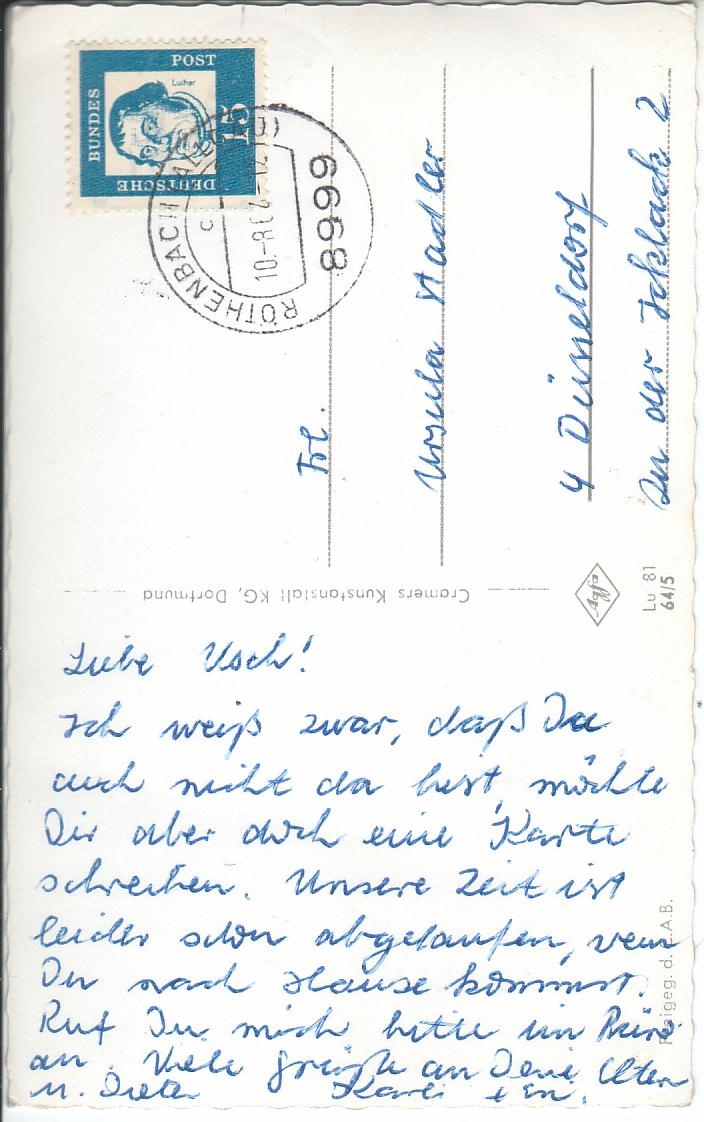 DEUTSCHE
BUNDES
POST
15
Luther
RÖTHENBACH
c
10-8.6
8999
Frl.
Ursula Stadler
4 Düsseldorf
In der Icklack 2
Cramers Kunstanstalt KG, Dortmund
Agfa
Lu 81
64/5
eigeg. d. A.B.
Liebe Usch!
Ich weiß zwar, daß Du
auch nicht da bist, möchte
Dir aber doch eine Karte
schreiben. Unsere Zeit ist
leider schon abgelaufen, wenn
Du nach Hause kommst.
Ruf Du mich bitte im Büro
an. Viele Grüße an Deine Eltern
u. Dieter